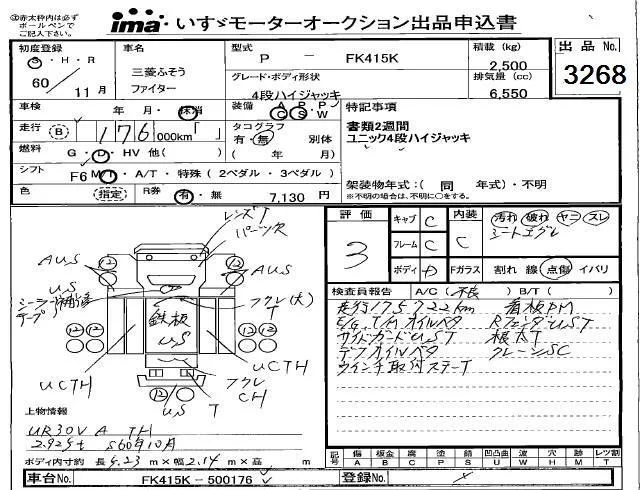 ◎赤太枠内は必ず
ボールペンで
ご記入下さい。
ima いすゞモーターオークション出品申込書
初度登録
S・H・R
60 / 11 月
車名
三菱ふそう
ファイター
型式
P － FK415K
グレード・ボディ形状
4段ハイジャッキ
積載 (kg)
2,500
排気量 (cc)
6,550
出品 No.
3268
車検 年・月・抹消
走行 B 176 000km「 」
燃料 G・D・HV 他( )
シフト F6 M/T・A/T・特殊(2ペダル・3ペダル)
色 指定 R券 有・無 7,130 円
装備 A P P
G S W
タコグラフ
有・無 別体
( 年 月)
特記事項
書類2週間
ユニック4段ハイジャッキ
架装物年式:( 同 年式)・不明
※不明の場合は、不明に○をする。
レンズT
パーツ欠
AUS
AUS
US
テープ
フクレ(大)
T
鉄板
US
UCTH
UCTH
フクレ
CH
US T
12 12 12 12 12 12
上物情報
UR30V A TH
2.925t S60年10月
ボディ内寸約 長 5.23 m×幅 2.14 m×高 m
車台No. FK415K－500176
登録No.
評価
3
キャブ C
フレーム C
ボディ D
内装 C
汚れ 破れ ヤニ スレ
シートエグレ
Fガラス 割れ 線 点傷 イバリ
検査員報告 A/C( 不良 ) B/T( )
走行175722km 看板PM
E/G.T/Mオイルベタ RフェンダUST
サイドガードUST 根太T
デフオイルベタ クレーンSC
ウインチ取付ステーT
記号 傷 A 板金 B 腐 C 塗 P 錆 S 凹凸曲 U 波 W 穴 H 跡 M レツ割 T